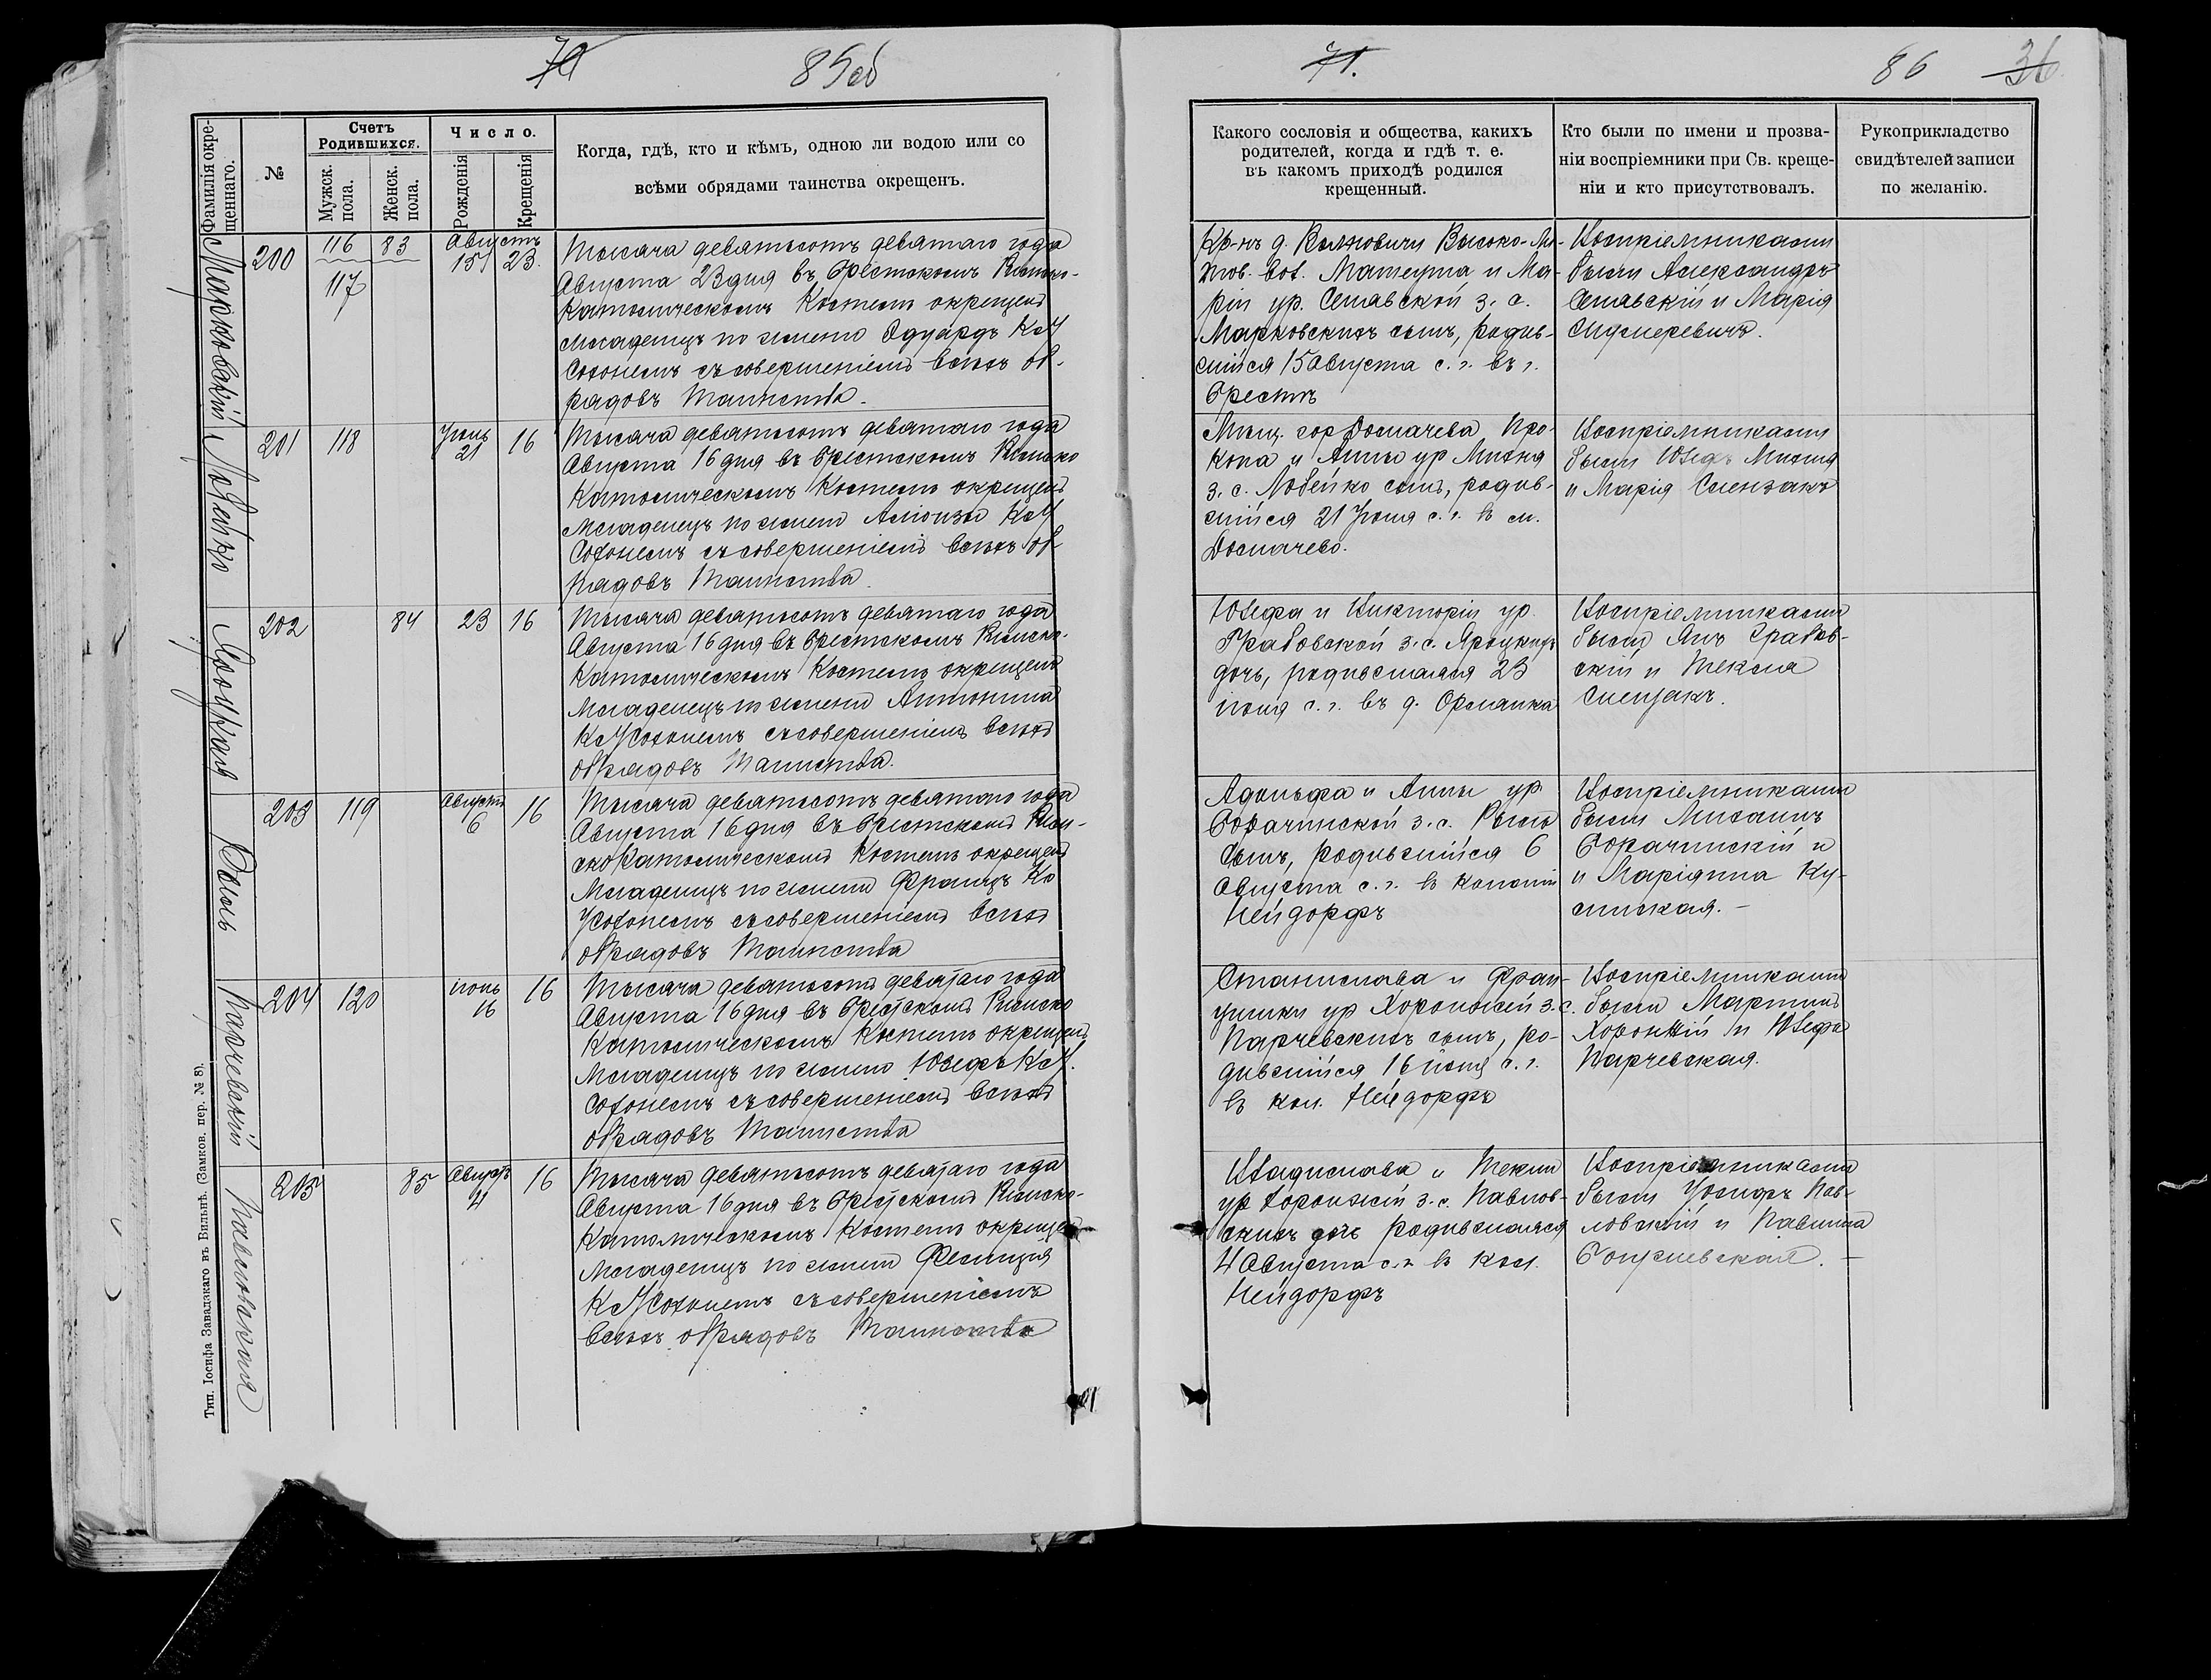 70
85об
Фамилія окре-
щеннаго.
№
Счетъ
Родившихся.
Мужск.
пола.
Женск.
пола.
Число.
Рожденія
Крещенія
Когда, гдѣ, кто и кѣмъ, одною ли водою или со
всѣми обрядами таинства окрещенъ.
Марковскій
200
116
117
83
Августъ
15
23
Тысяча девятьсотъ девятаго года
Августа 23 дня въ Брестскомъ Римско-
Католическомъ Костелѣ окрещенъ
младенецъ по имени Эдуардъ К
съ совершеніемъ всѣхъ об-
рядовъ Таинства.
Лобейко
201
118
Іюнь
21
16
Тысяча девятьсотъ девятаго года
Августа 16 дня въ Брестскомъ Римско
Католическомъ Костелѣ окрещенъ
Младенецъ по имени К
съ совершеніемъ всѣхъ об
рядовъ Таинства.
202
84
23
16
Тысяча девятьсотъ девятаго года
Августа 16 дня въ Брестскомъ Римско-
Католическомъ Костелѣ окрещенъ
Младенецъ по имени Антонина
съ совершеніемъ всѣхъ
обрядовъ Таинства.
203
119
Августъ
6
16
Тысяча девятьсотъ девятаго года
Августа 16 дня въ Брестскомъ Рим-
ско Католическомъ Костелѣ окрещенъ
Младенецъ по имени Францъ
съ совершеніемъ всѣхъ
обрядовъ Таинства
Парчевскій
204
120
іюнь
16
16
Тысяча девятьсотъ девятаго года
Августа 16 дня въ Брестскомъ Римско
Католическомъ Костелѣ окрещенъ
Младенецъ по имени Юзефъ
съ совершеніемъ всѣхъ
обрядовъ Таинства
Павловская
205
85
Августъ
4
16
Тысяча девятьсотъ девятаго года
Августа 16 дня въ Брестскомъ Римско-
Католическомъ Костелѣ окрещенъ
Младенецъ по имени Фелиція
съ совершеніемъ
всѣхъ обрядовъ Таинства
Тип. Іосифа Завадзкаго въ Вильнѣ. (Замков. пер. № 8).
71.
86
36
Какого сословія и общества, какихъ
родителей, когда и гдѣ т. е.
въ какомъ приходѣ родился
крещенный.
Кто были по имени и прозва-
ніи воспріемники при Св. креще-
ніи и кто присутствовалъ.
Рукоприкладство
свидѣтелей записи
по желанію.
Кр-нъ д. Высоко-Ли-
тов. вол. Матеуша и Ма-
ріи ур. з. с.
Марковскихъ сынъ, родив-
шійся 15 Августа с. г. въ г.
Брестѣ
Воспріемниками
были Александръ
и Марія
Мѣщ. гор Домачева Про-
копа и Анны ур Михня
з. с. Лобейко сынъ, родив-
шійся 21 Іюня с. г. въ м.
Домачево.
Воспріемниками
были Юзефъ
и Марія
Юзефа и Викторіи ур.
Грабовской з. с. Яроцкихъ
дочь, родившаяся 23
іюня с. г. въ д. Орлянка
Воспріемниками
были Янъ Грабов-
скій и Текля
Адольфа и Анны ур.
з. с. Рыль
сынъ, родившійся 6
Августа с. г. въ колоніи
Нейдорфъ
Воспріемниками
были Михаилъ
и
и Маріянна Ку-
Станислава и Фран-
цишки ур Хоронжей з. с.
Парчевскихъ сынъ, ро-
дившійся 16 іюня с. г.
въ кол. Нейдорфъ
Воспріемниками
были Мартинъ
Хоронжій и Юзефа
Парчевская.
Владислава и Текли
ур Хоронжій з. с. Павлов-
скихъ дочь родившаяся
4 Августа с. г. въ кол.
Нейдорфъ
Воспріемниками
были Іосифъ Пав-
ловскій и Павлина